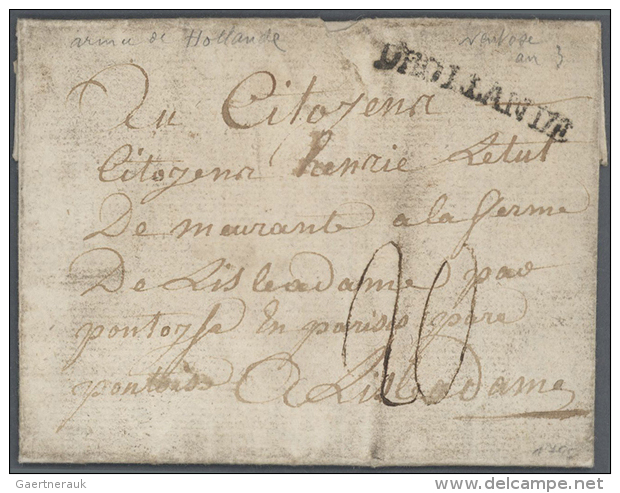 armee de Hollande
Ventose
an 3
D'HOLLANDE
Au Citoyena
Citoyena henrie Letut
De meurante a la ferme
De Lisleadame par
pontoysse En parisis pare
pontoise A Lisleadame
20
Gaertnerauk
www.delcampe.net